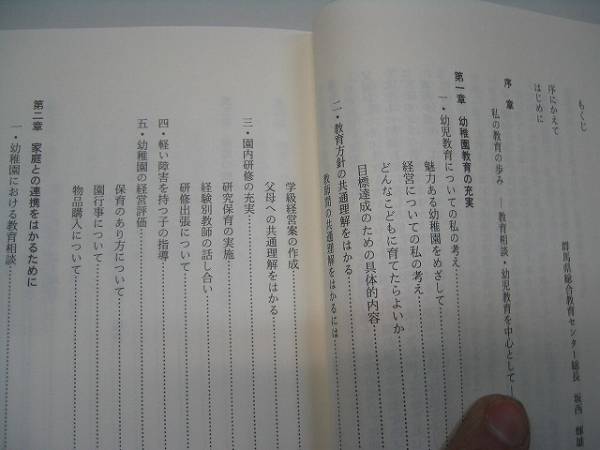 もくじ
序にかえて
群馬県総合教育センター総長 坂西 輝雄
はじめに
序章
私の教育の歩み ―教育相談・幼児教育を中心として―
第一章 幼稚園教育の充実
一・幼児教育についての私の考え
魅力ある幼稚園をめざして
経営についての私の考え
どんなこどもに育てたらよいか
目標達成のための具体的内容
二・教育方針の共通理解をはかる
教師間の共通理解をはかるには
学級経営案の作成
父母への共通理解をはかる
三・園内研修の充実
研究保育の実施
経験別教師の話し合い
研修出張について
四・軽い障害を持つ子の指導
五・幼稚園の経営評価
保育のあり方について
園行事について
物品購入について
第二章 家庭との連携をはかるために
一・幼稚園における教育相談